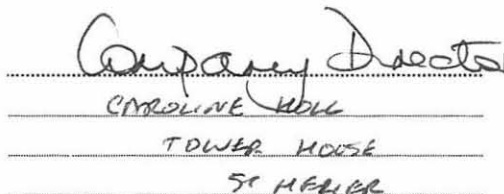 Company Director
CAROLINE HOLL
TOWER HOUSE
ST HELIER